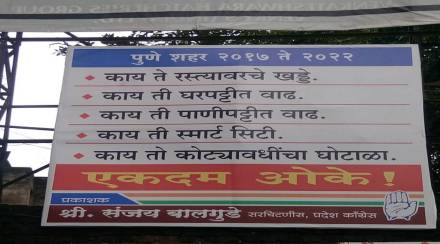 पुणे शहर २०१७ ते २०२२
काय ते रस्त्यावरचे खड्डे.
काय ती घरपट्टीत वाढ.
काय ती पाणीपट्टीत वाढ.
काय ती स्मार्ट सिटी.
काय तो कोट्यावधींचा घोटाळा.
एकदम ओके!
प्रकाशक
श्री. संजय बालगुडे सरचिटणीस, प्रदेश काँग्रेस